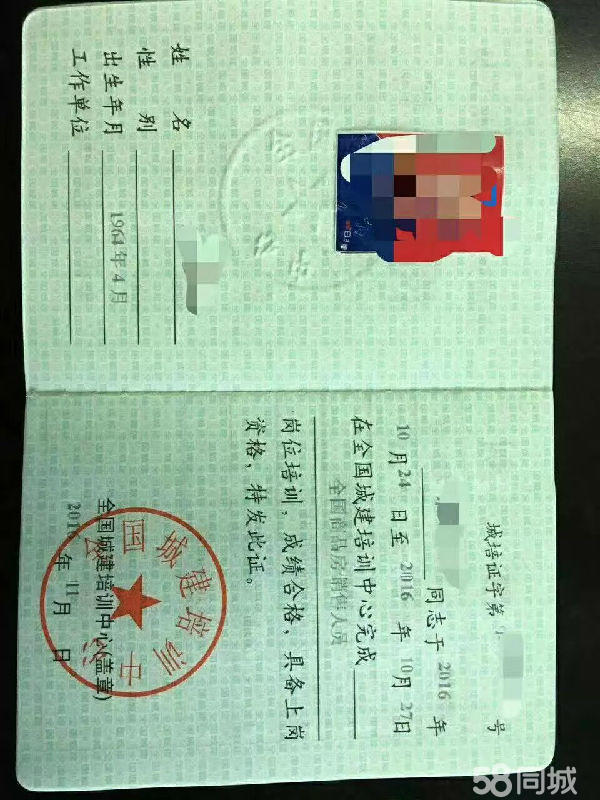 姓 名
性 别
出生年月 1964年4月
工作单位
城培证字第 号
同志于 2016 年
10 月 24 日至 2016 年 10 月 27 日
在全国城建培训中心完成
全国商品房销售人员
岗位培训，成绩合格，具备上岗
资格，特发此证。
全国城建培训中心(盖章)
2016 年 11 月 日
58同城